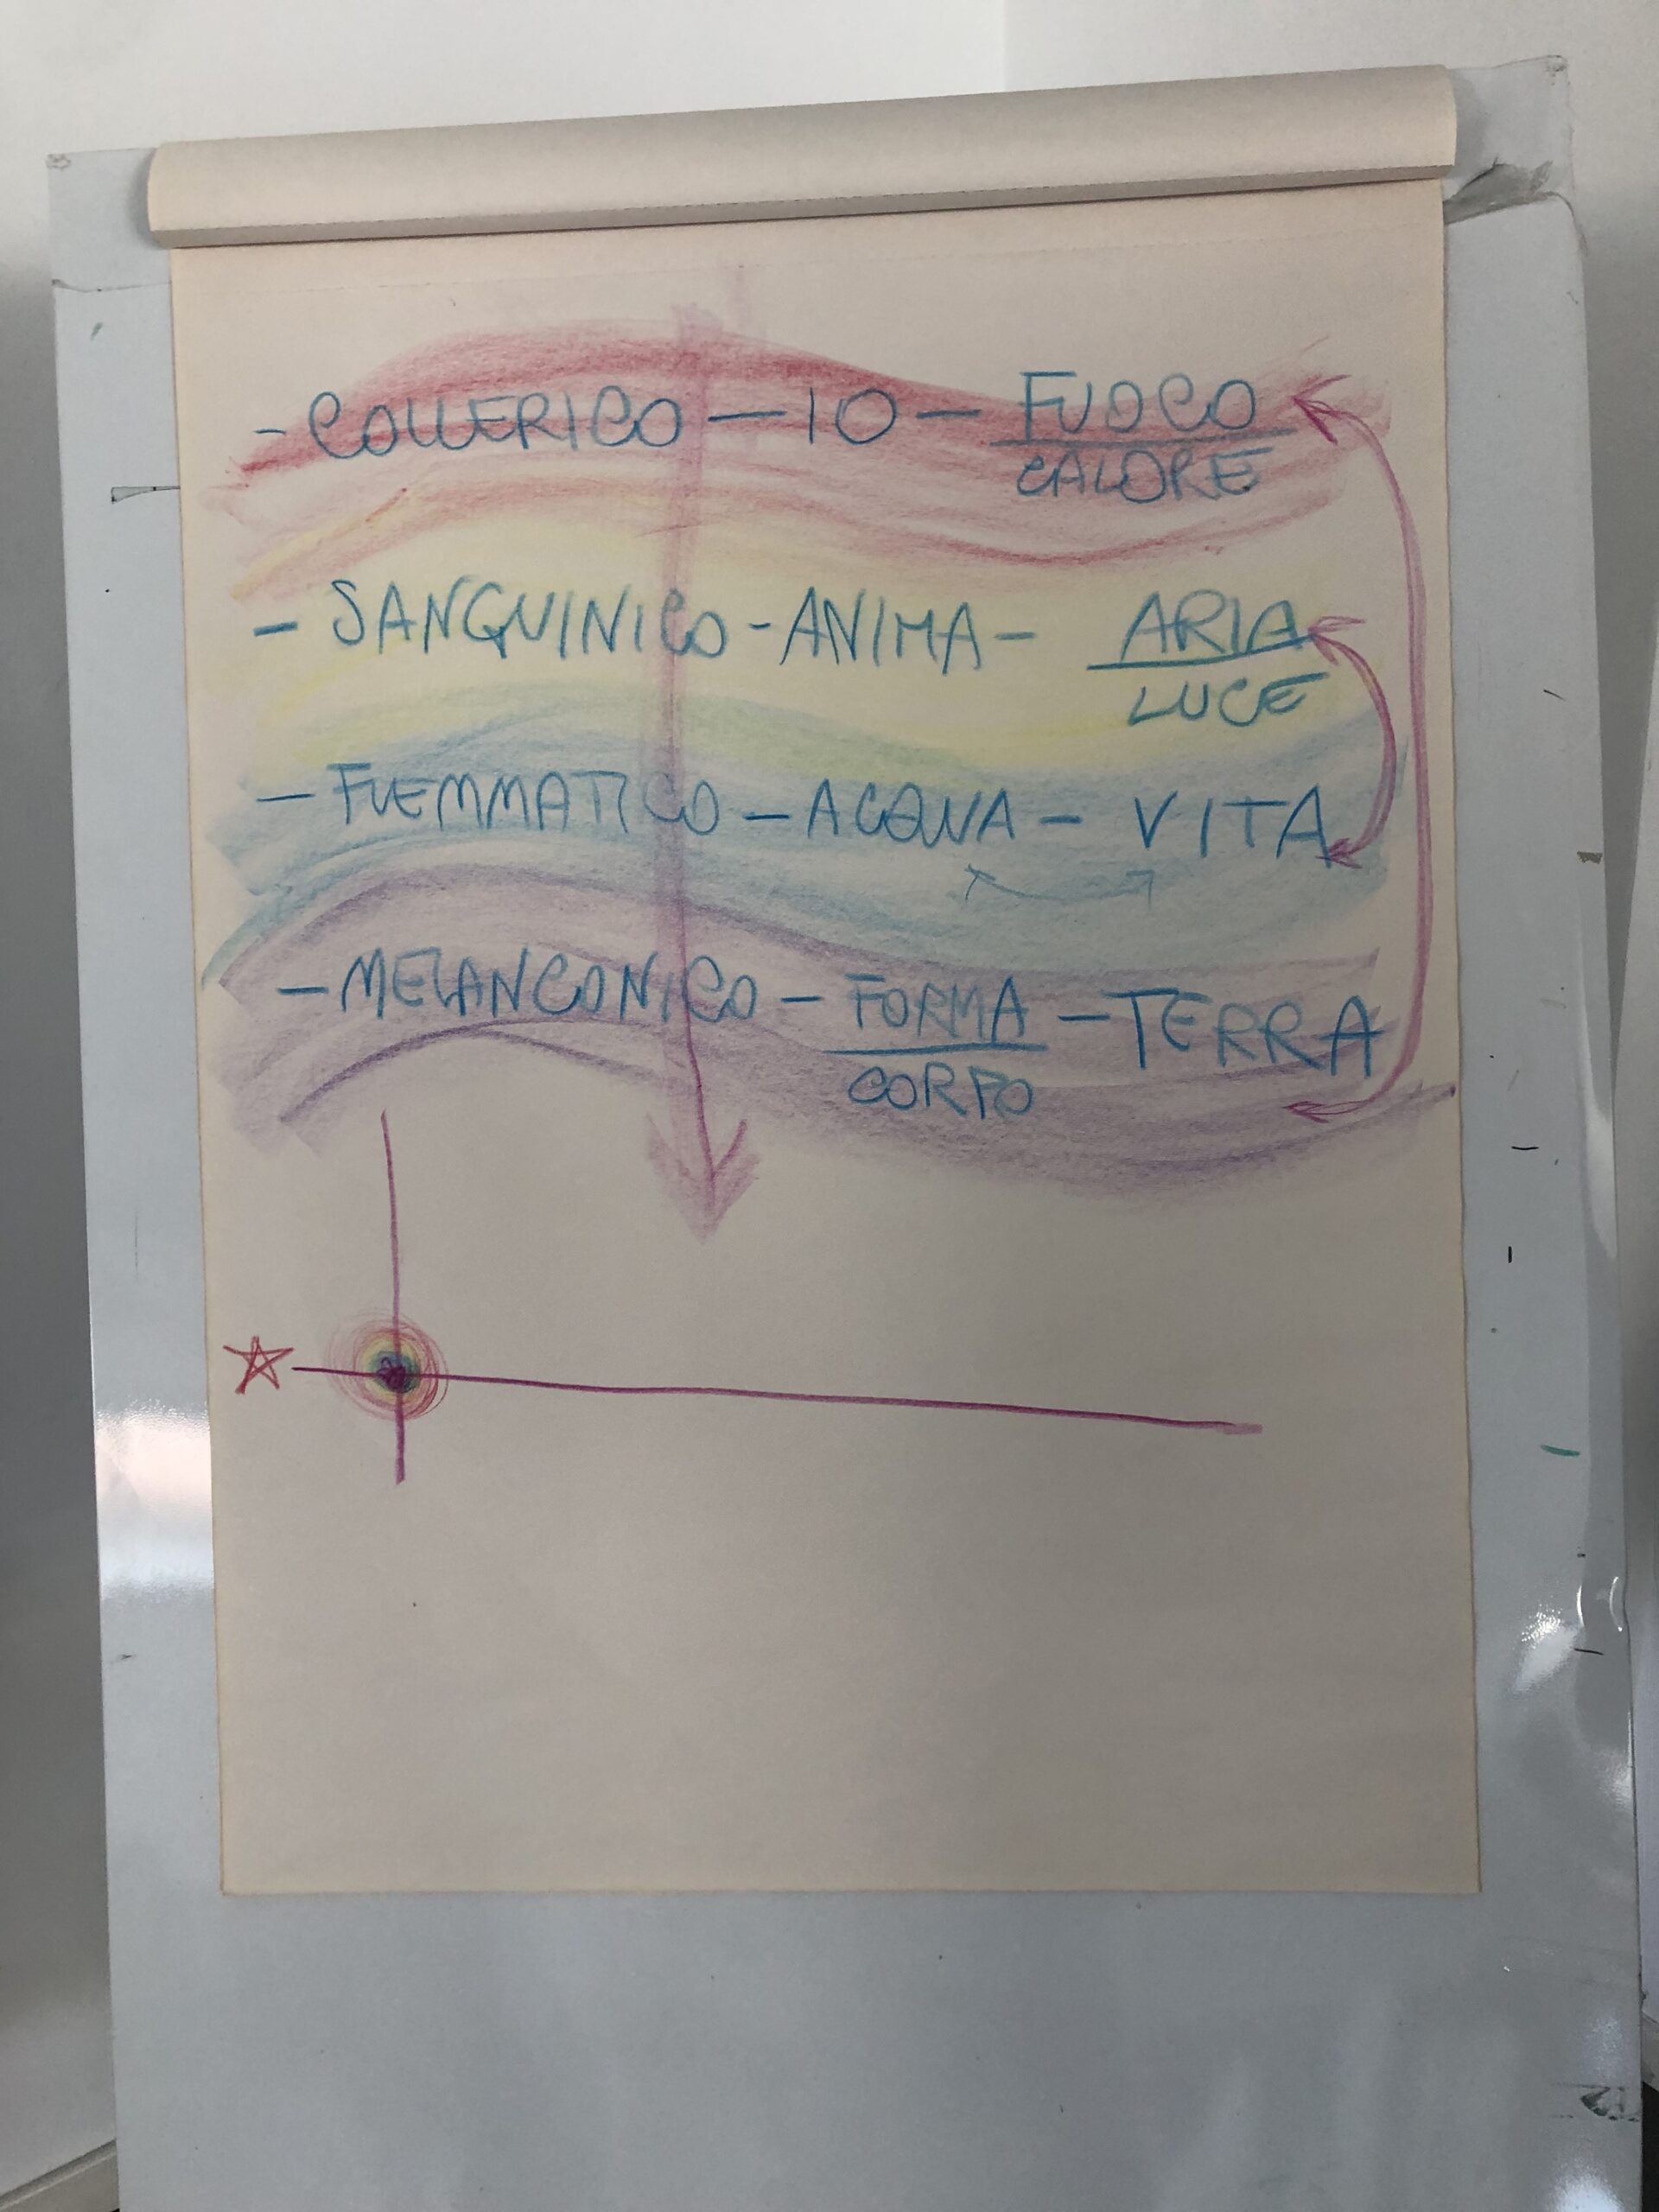 - COLLERICO - IO - FUOCO
CALORE
- SANGUINICO - ANIMA - ARIA
LUCE
- FLEMMATICO - ACQUA - VITA
- MELANCONICO - FORMA - TERRA
CORPO